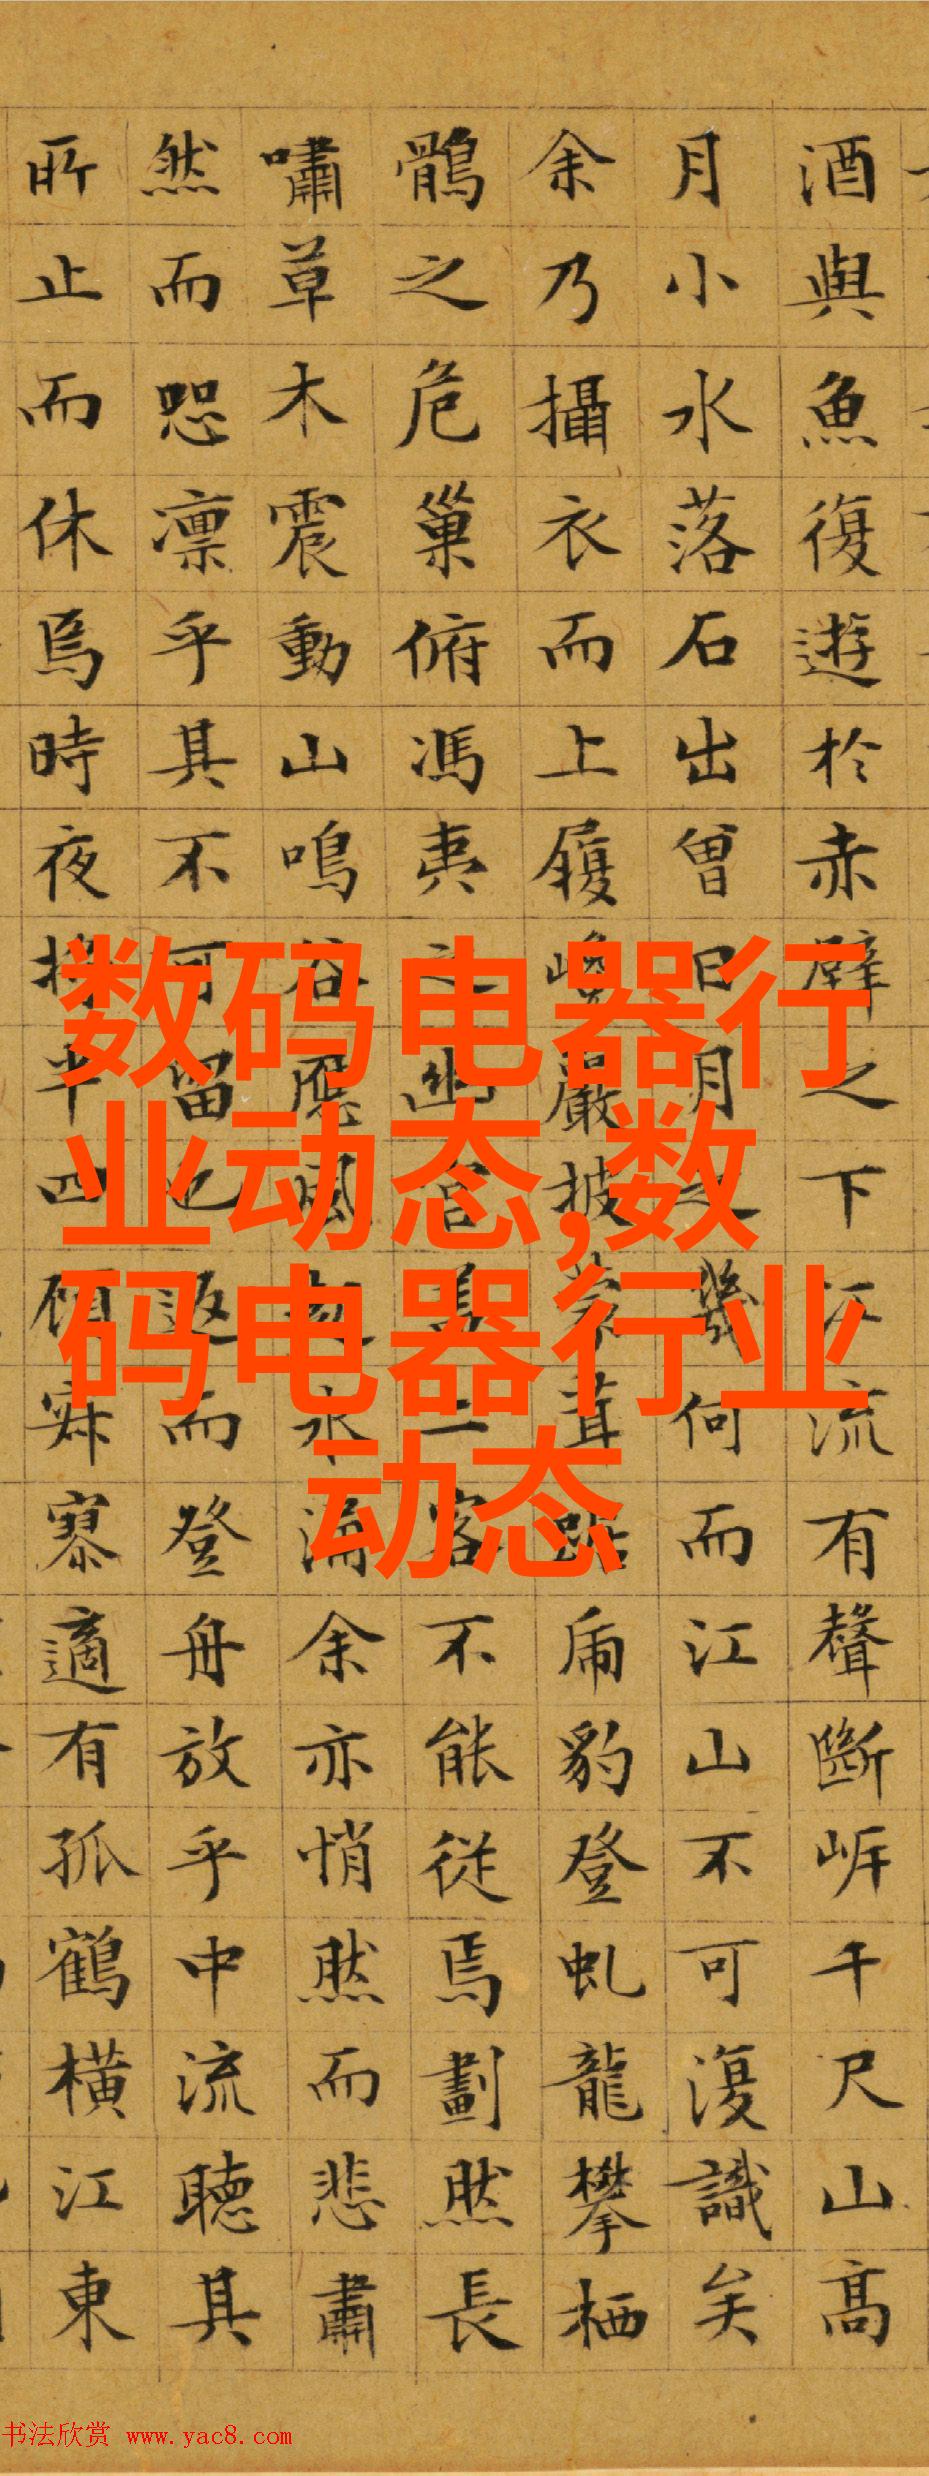 酒與魚復遊於赤壁之下江流有聲斷岸千尺山高
月小水落石出曾日月之幾何而江山不可復識矣
余乃攝衣而上履巉巖披蒙茸踞虎豹登虬龍攀栖
鶻之危巢俯馮夷之幽宮蓋二客不能從焉劃然長
嘯草木震動山鳴谷應風起水涌余亦悄然而悲肅
然而恐凜乎其不可留也返而登舟放乎中流聽其
所止而休焉時夜將半四顧寂寥適有孤鶴橫江東
数码电器行
业动态,数
码电器行业
动态
书法欣赏 www.yac8.com